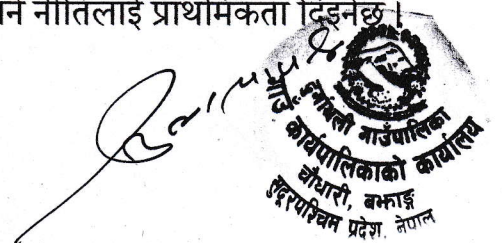 नीतिलाई प्राथमिकता दिइनेछ |
गाउँ कार्यपालिकाको कार्यालय
चौधारी, बझाङ्ग
सुदूरपश्चिम प्रदेश, नेपाल